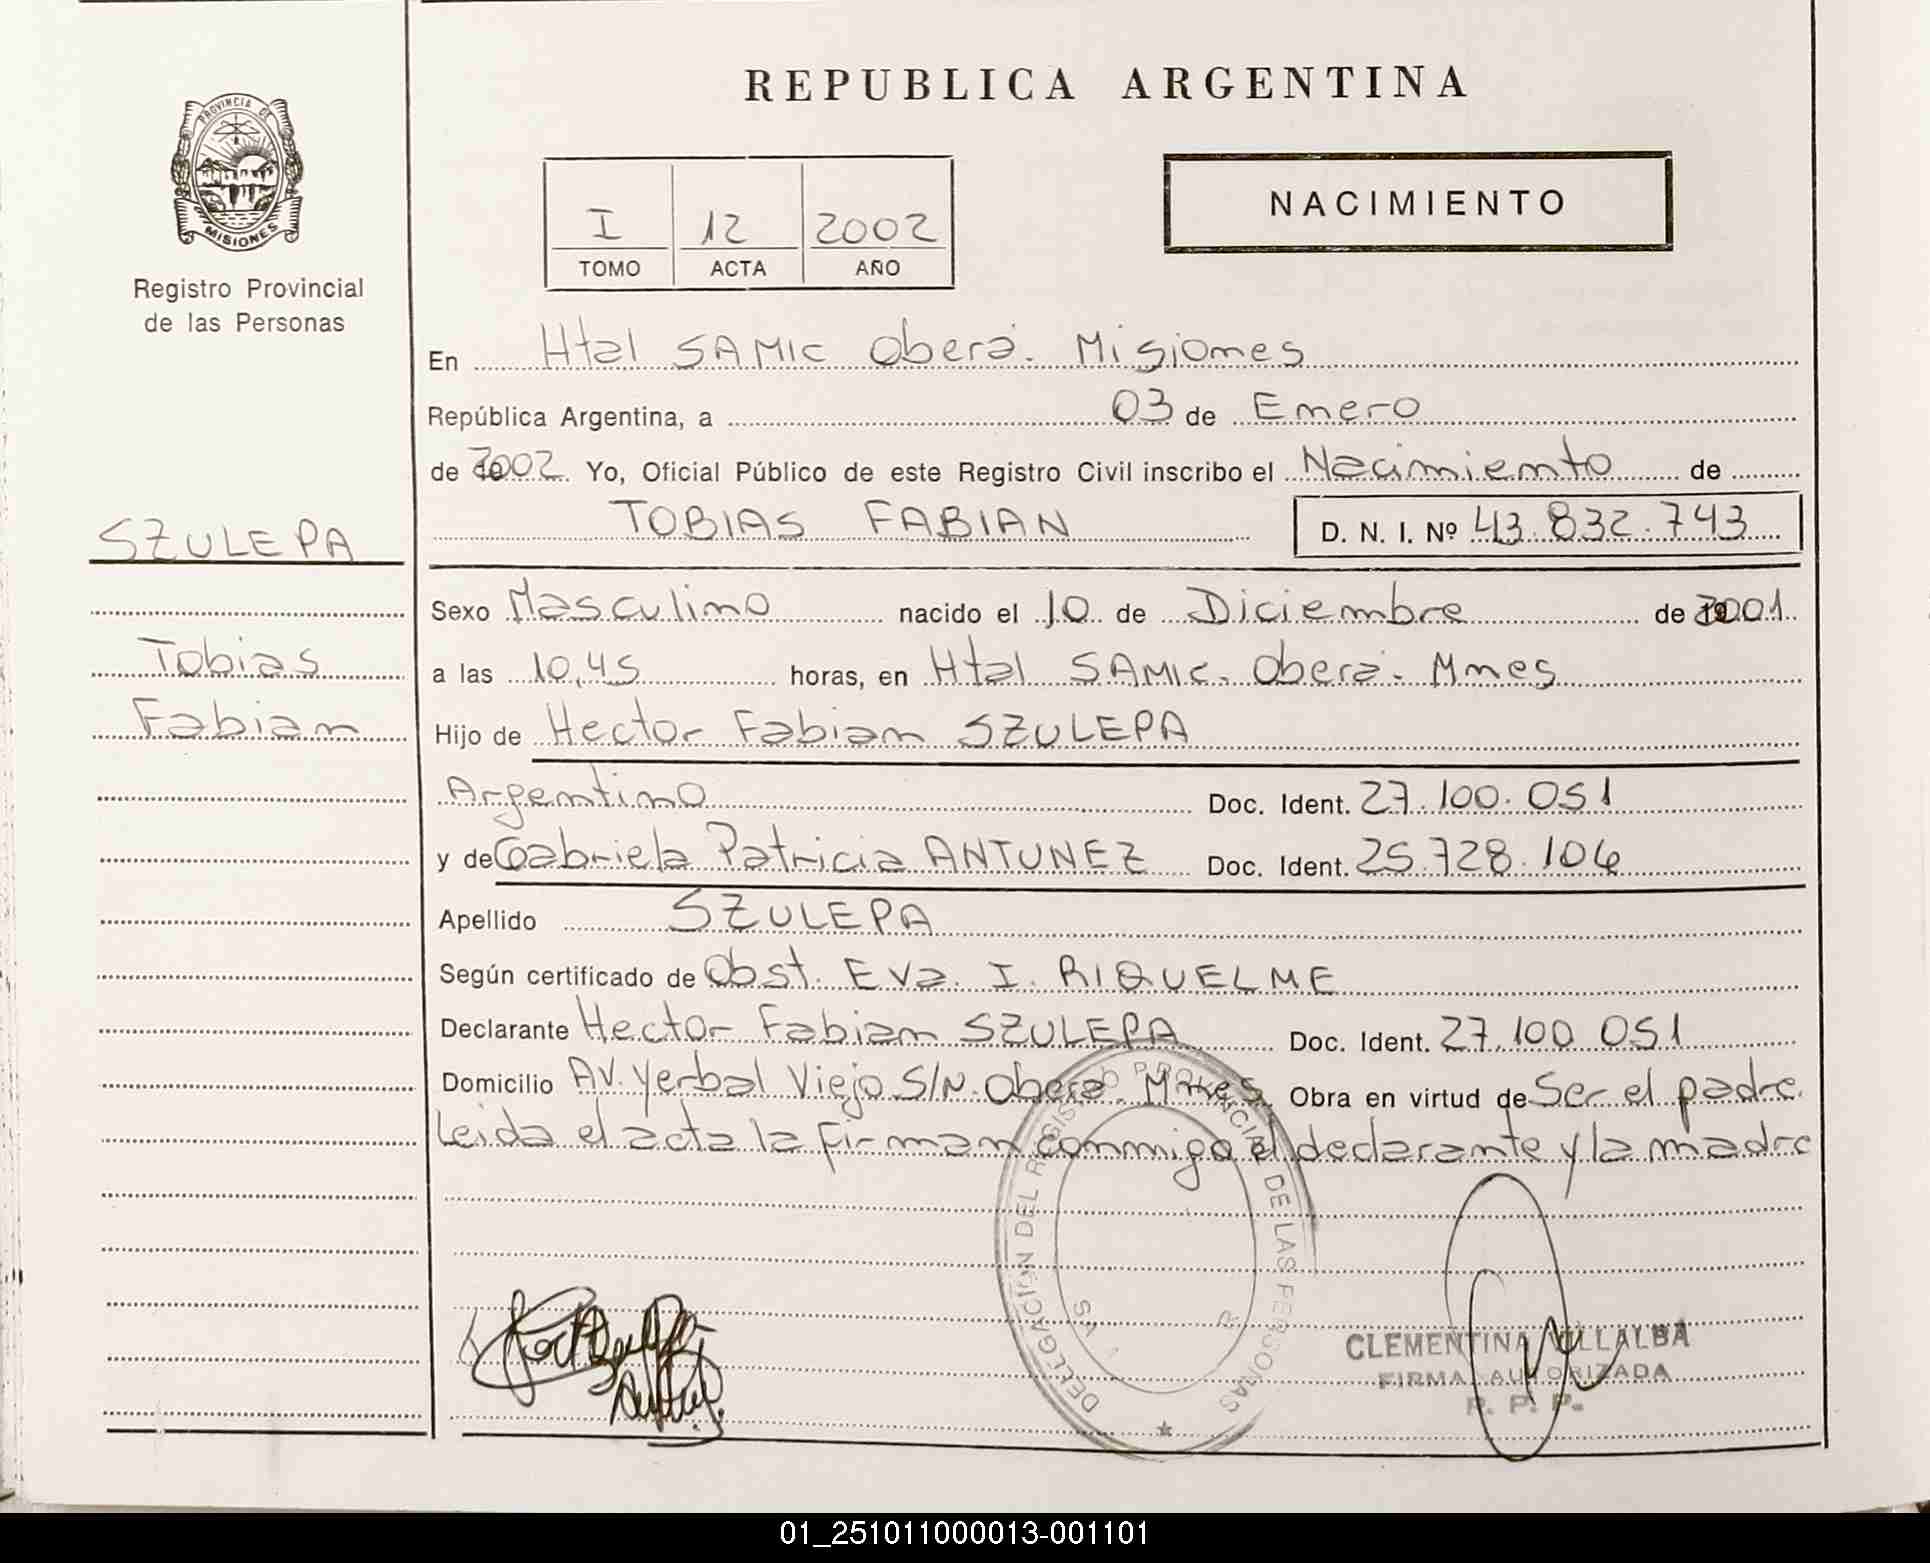 REPUBLICA ARGENTINA
PROVINCIA DE
MISIONES
Registro Provincial
de las Personas
I 12 2002
TOMO ACTA AÑO
NACIMIENTO
En Htal SAMIC Oberá. Misiones
República Argentina, a 03 de Enero
de 2002. Yo, Oficial Público de este Registro Civil inscribo el Nacimiento de
TOBIAS FABIAN D. N. I. Nº 43.832.743
SZULEPA
Tobias
Fabian
Sexo Masculino nacido el 10 de Diciembre de 2001
a las 10,45 horas, en Htal SAMIC. Oberá. Mnes
Hijo de Hector Fabian SZULEPA
Argentino Doc. Ident. 27.100.051
y de Gabriela Patricia ANTUNEZ Doc. Ident. 25.728.104
Apellido SZULEPA
Según certificado de Obst. Eva. I. RIQUELME
Declarante Hector Fabian SZULEPA Doc. Ident. 27.100 051
Domicilio AV. Yerbal Viejo S/N. Oberá. Mnes Obra en virtud de Ser el padre.
Leida el acta la firman conmigo el declarante y la madre
DELEGACIÓN DEL REGISTRO PROVINCIAL DE LAS PERSONAS
CLEMENTINA VILLALBA
FIRMA AUTORIZADA
R. P. P.
01_251011000013-001101